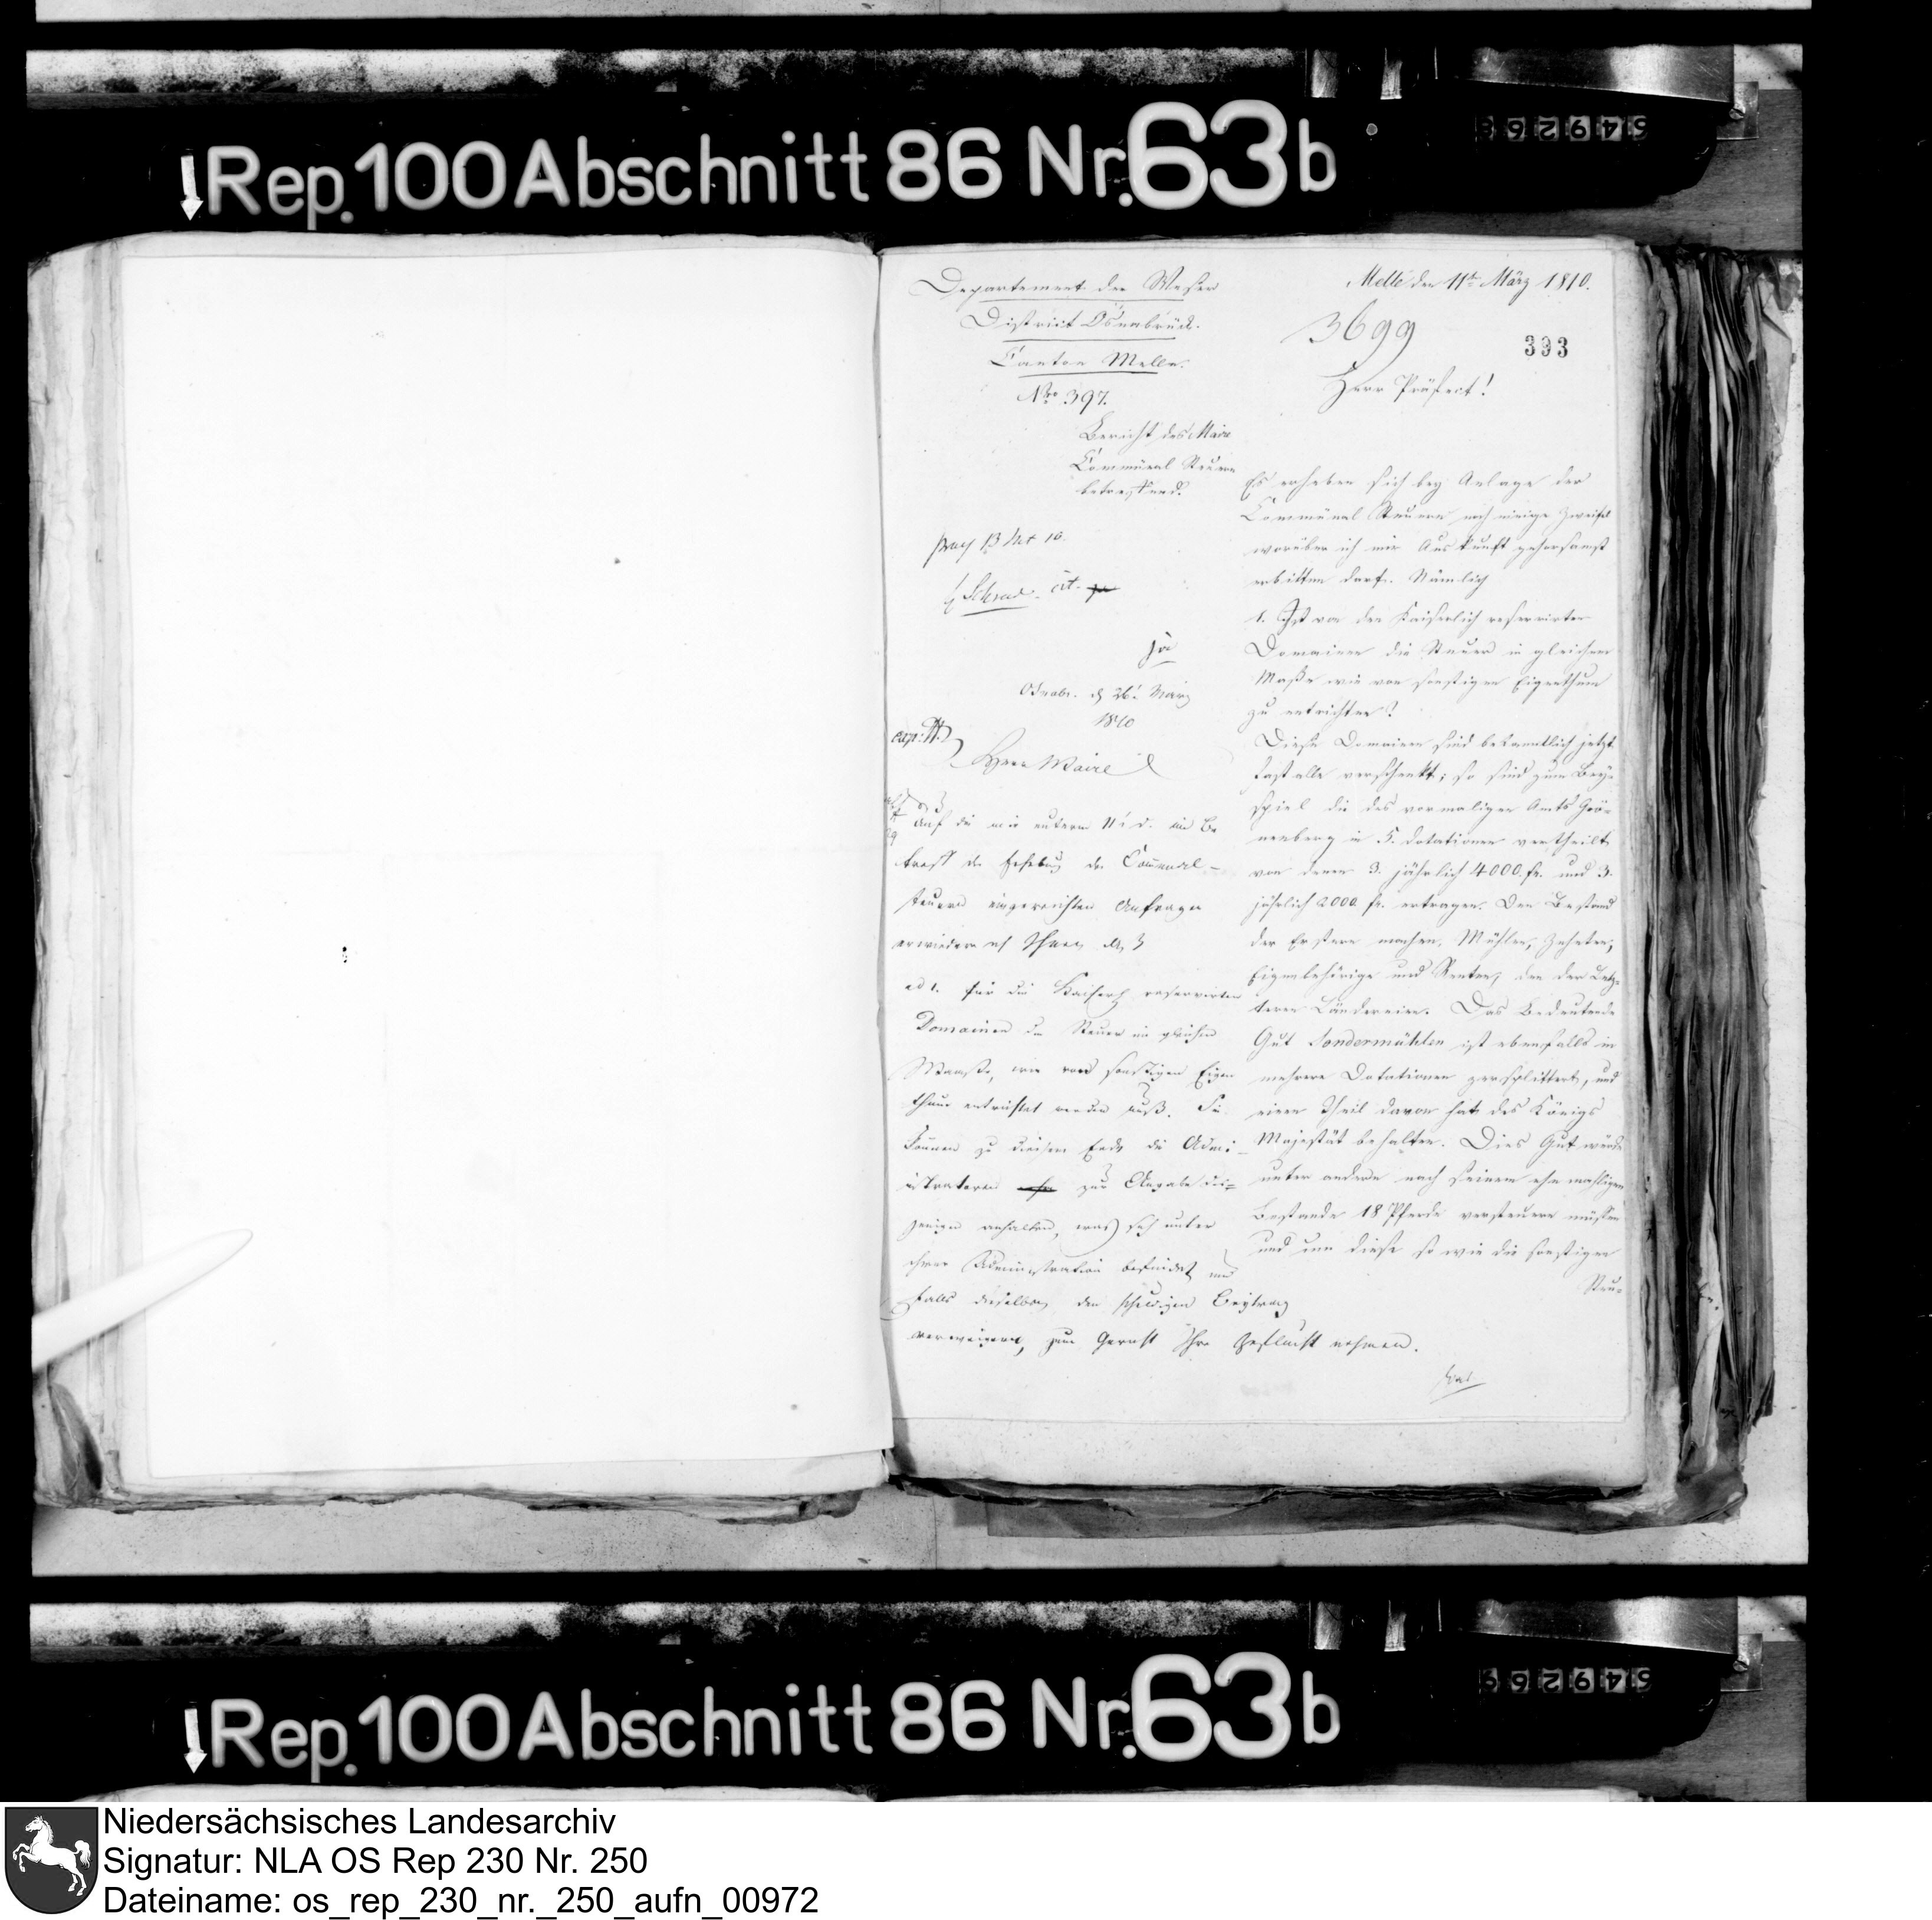 Rep. 100 Abschnitt 86 Nr. 63 b
549263
Departement der Weser
District Osnabrück.
Canton Melle.
Nro 397.
Bericht des Maire
Communal Steuern
betreffend.
Melle den 11t März 1810.
3699
393
Herr Präfect!
Es erheben sich bey Anlage der
Communal Steuern noch einige Zweifel
worüber ich mir Auskunft gehorsamst
erbitten darf. Nämlich
1. Ist von den Kaiserlich reservirten
Domainen die Steuer in gleichem
Maße wie von sonstigem Eigenthum
zu entrichten?
Diese Domainen sind bekanntlich jetzt
fast alle verschenkt; so sind zum Bey-
spiel die des vormaligen Amts Grö-
nenberg in 5. dotationen vertheilt
von denen 3. jährlich 4000 fr. und 3.
jährlich 2000 fr. ertragen. Den Bestand
der Erstern machen, Mühlen, Zehnten,
Eigenbehörige und Renten, den der Letz-
teren Ländereien. Das bedeutende
Gut Sondermühlen ist ebenfalls in
mehrere Dotationen zersplittert, und
einen Theil davon hat des Königs
Majestät behalten. Dies Gut würde
unter andern nach seinem ehemahligen
Bestande 18 Pferde versteuern müssen
und nun diese so wie die sonstigen
Steu-
praes 13 10.
Schrad. cit.
Osnabr. d 26t März
1810
Herr Maire
Auf die mir unterm 11t d. in Be
treff der Erhebung der Communal-
steuern eingereichten Anfragen
erwiedere ich Ihnen, daß
ad 1. für die Kaiserl. reservirten
Domainen die Steuer in gleichem
Maaße, wie von sonstigem Eigen
thum entrichtet werden muß. Sie
können zu diesem Ende die Admi-
nistratoren zur Angabe des-
jenigen anhalten, was sich unter
ihrer Administration befindet und
falls dieselben den schuldigen Beytrag
verweigern, zum Gericht Ihre Zuflucht nehmen.
Rep. 100 Abschnitt 86 Nr. 63 b
Niedersächsisches Landesarchiv
Signatur: NLA OS Rep 230 Nr. 250
Dateiname: os_rep_230_nr._250_aufn_00972